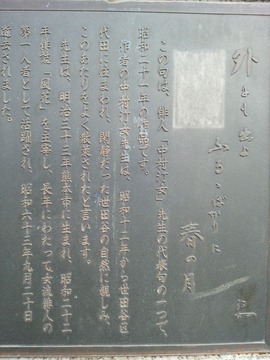 外にも出よ
ふるゝばかりに
春の月
汀
この句は、俳人「中村汀女」先生の代表句の一つで、
昭和二十一年の作品です。
作者の中村汀女先生は、昭和十二年から世田谷区
代田に住まわれ、閑静だった世田谷の自然に親しみ、
このあたりをよく散策されたと言います。
先生は、明治三十三年熊本市に生まれ、昭和二十二
年俳誌「風花」を主宰し、長年にわたって女流俳人の
第一人者として活躍され、昭和六十三年九月二十日
逝去されました。